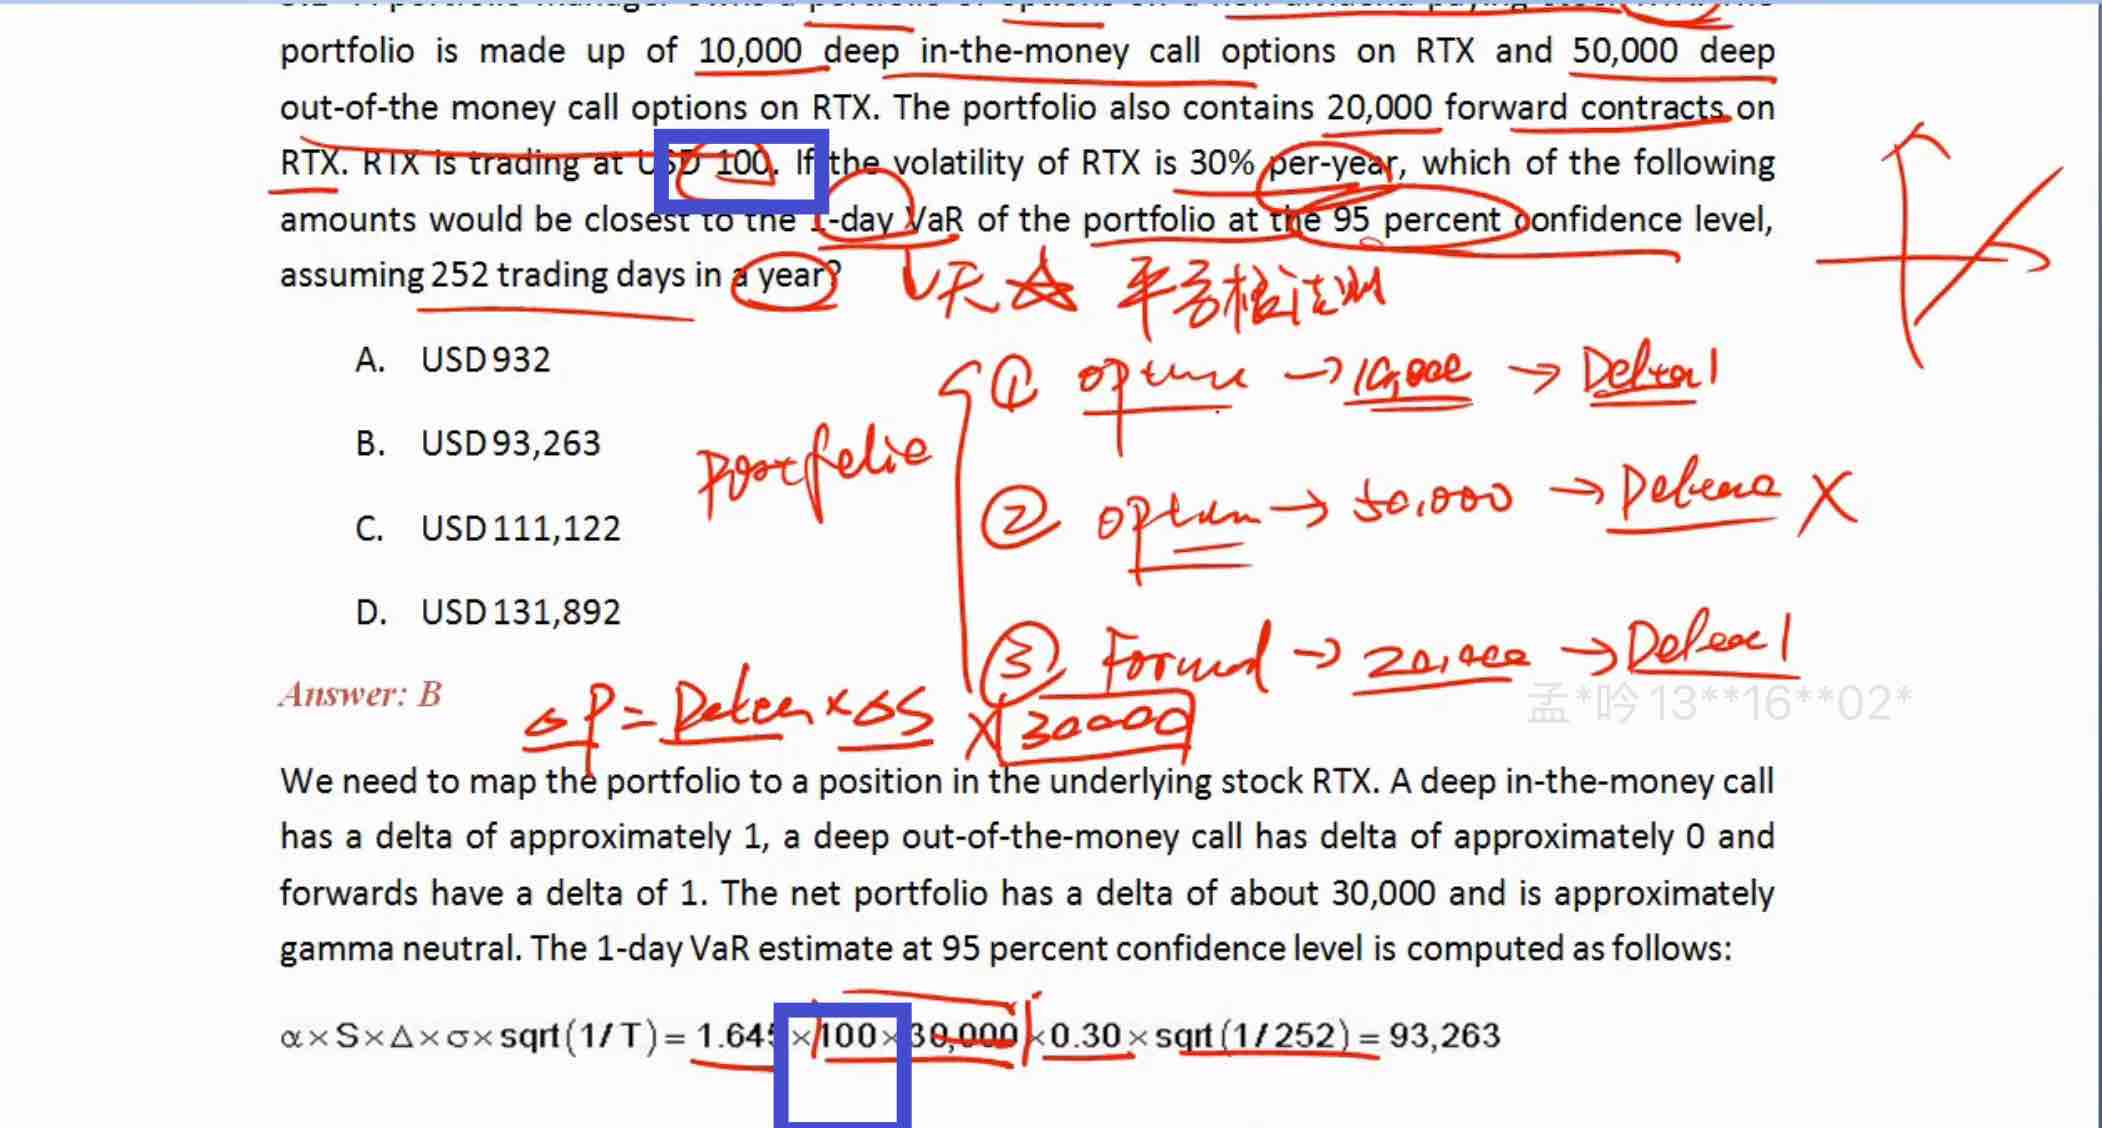 portfolio is made up of 10,000 deep in-the-money call options on RTX and 50,000 deep
out-of-the money call options on RTX. The portfolio also contains 20,000 forward contracts on
RTX. RTX is trading at USD 100. If the volatility of RTX is 30% per-year, which of the following
amounts would be closest to the 1-day VaR of the portfolio at the 95 percent confidence level,
assuming 252 trading days in a year?
天 平方根法则
A. USD 932
① → 10,000 → Delta 1
B. USD 93,263
portfolio
② option → 50,000 → Delta 0 X
C. USD 111,122
D. USD 131,892
③ Forward → 20,000 → Delta 1
Answer: B
孟*吟13**16**02*
ΔP = Delta × ΔS × 30000
We need to map the portfolio to a position in the underlying stock RTX. A deep in-the-money call
has a delta of approximately 1, a deep out-of-the-money call has delta of approximately 0 and
forwards have a delta of 1. The net portfolio has a delta of about 30,000 and is approximately
gamma neutral. The 1-day VaR estimate at 95 percent confidence level is computed as follows:
α×S×Δ×σ×sqrt(1/T)=1.645×100×30,000×0.30×sqrt(1/252)=93,263